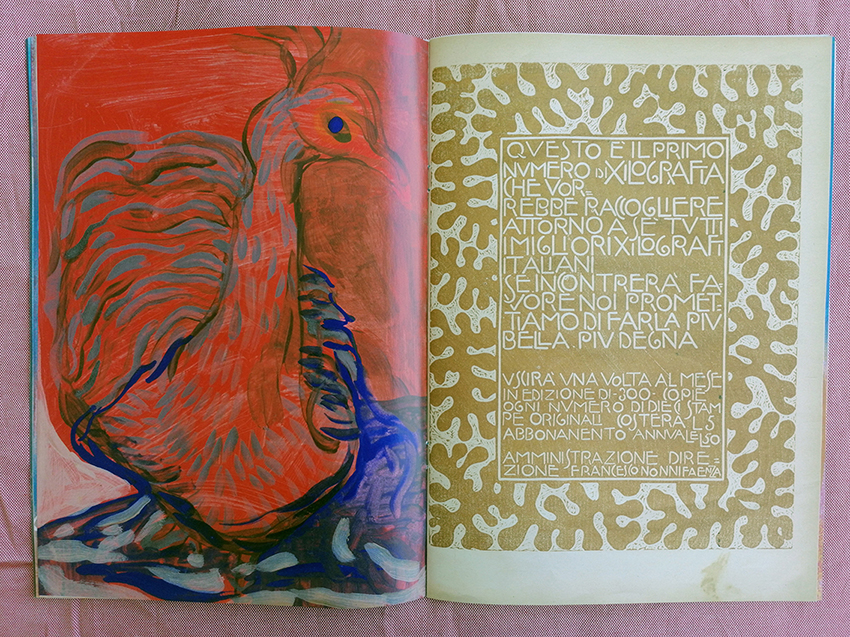 QVESTO E' IL PRIMO
NVMERO DI XILOGRAFIA
CHE VOR=
REBBE RACCOGLIERE
ATTORNO A SE' TVTTI
I MIGLIORI XILOGRAFI
ITALIANI
SE INCONTRERA FA=
VORE NOI PROMET=
TIAMO DI FARLA PIV
BELLA. PIV DEGNA
VSCIRA' VNA VOLTA AL MESE
IN EDIZIONE DI-300-COPIE
OGNI NVMERO DI DIECI STAM=
PE ORIGINALI COSTERA L.5
ABBONANENTO ANNVALE L.50
AMMINISTRAZIONE DIRE=
ZIONE FRANCESCO NONNI FAENZA